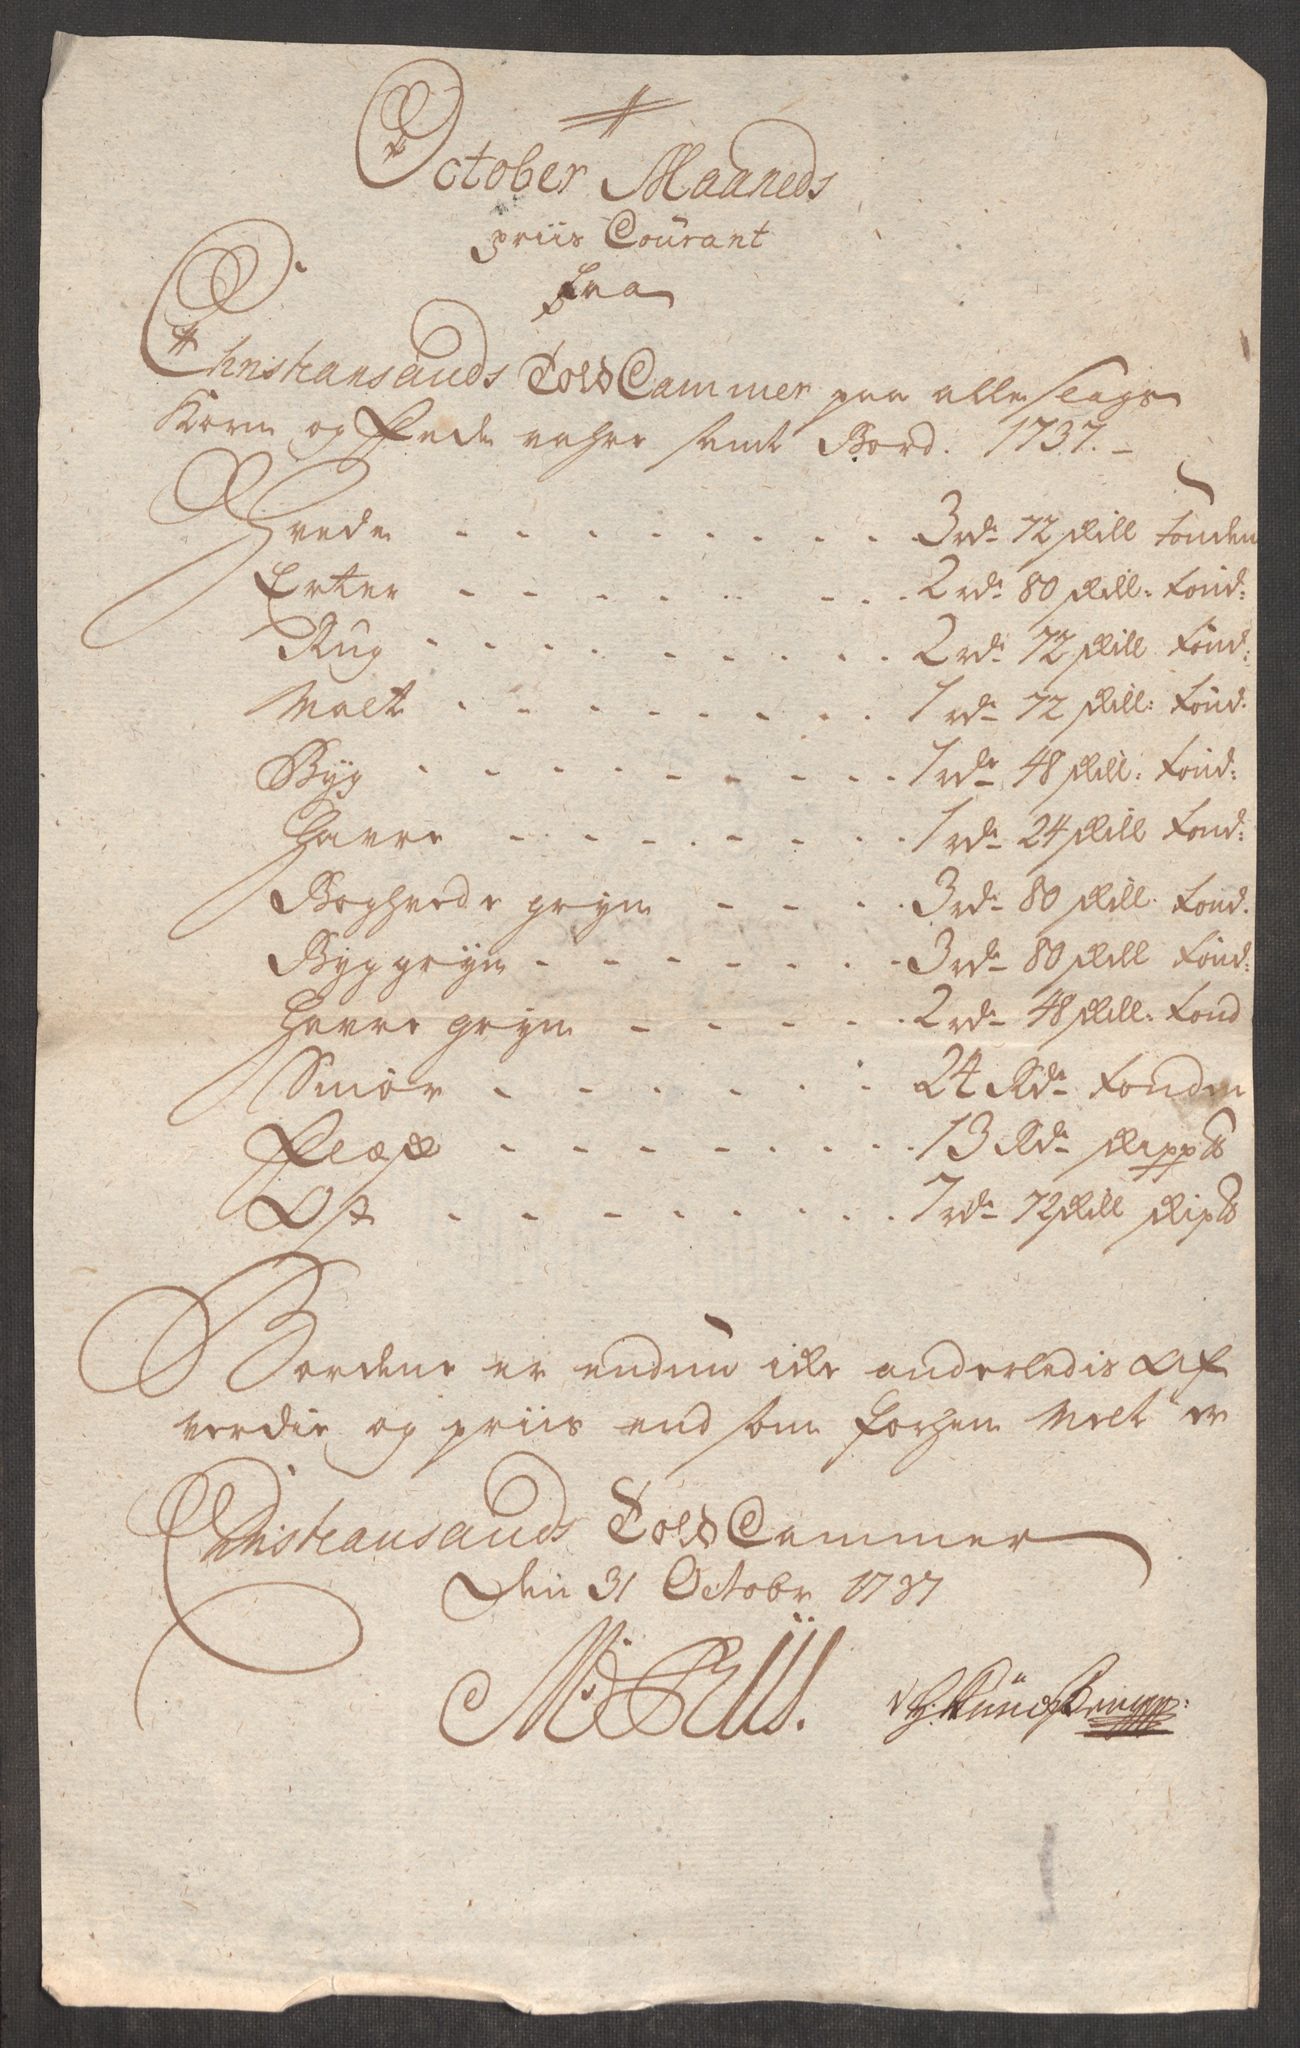 October Maaneds
priis Courant
fra
Christiansands Told Cammer paa alle slags
Korn og fede vahre samt Bord. 1737.
Hvede - - - - - - - - 3 rd. 72 skill Tønden
Erter - - - - - - - - 2 rd. 80 skill: Tønd:
Rug - - - - - - - - 2 rd. 72 skill Tønd:
Malt - - - - - - - - 1 rd. 72 skill: Tønd:
Byg - - - - - - - - 1 rd. 48 skill: Tønd:
Havre - - - - - - - 1 rd. 24 skill Tønd:
Boghvede gryn - - - - 3 rd. 80 skill. Tønd.
Byggryn - - - - - - - 3 rd. 80 skill Tønd:
Havre gryn - - - - - 2 rd. 48 skill: Tønd
Smør - - - - - - 24 Rd. Tønden
Flesk - - - - - - - 13 Rd. Skipp℔
Ost - - - - - - - - 7 rd. 72 skill Skip℔
Bordene er endnu icke anderledis af
verdie og priis end som forhen melt er
Christiansands Told Cammer
Den 31 Octobr 1737